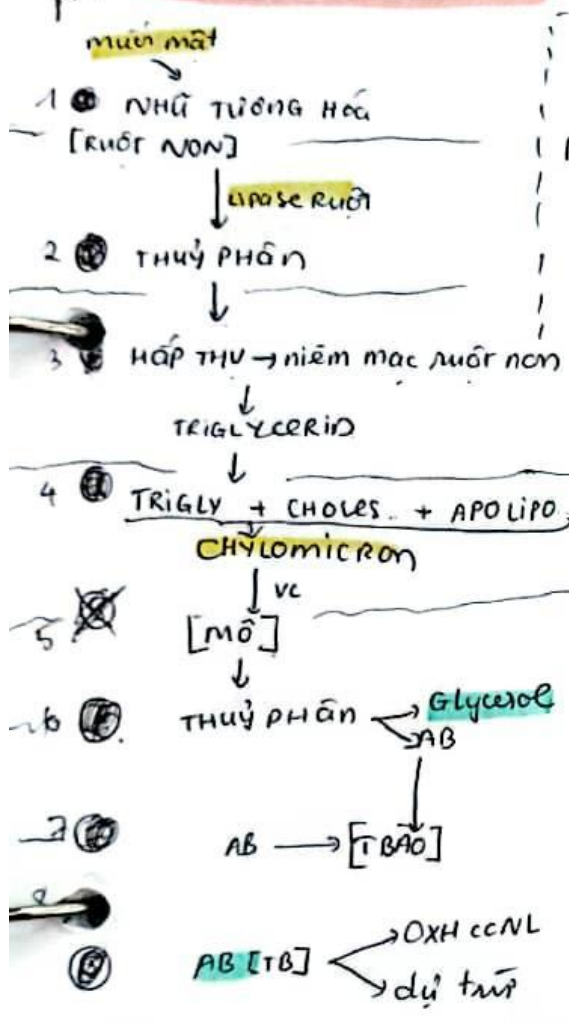 muối mật
1 NHŨ TƯƠNG HÓA
[RUỘT NON]
LIPASE RUỘT
2 THUỶ PHÂN
3 HẤP THU → niêm mạc ruột non
TRIGLYCERID
4 TRIGLY + CHOLES. + APOLIPO.
CHYLOMICRON
VC
5 [MÔ]
6 THUỶ PHÂN Glycerol
AB
7 AB → [TBÀO]
8
AB [TB] OXH CCNL
dự trữ